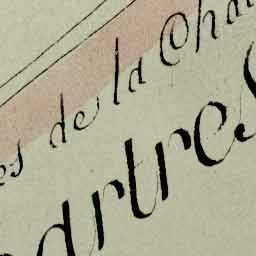 es de la Cha
artres